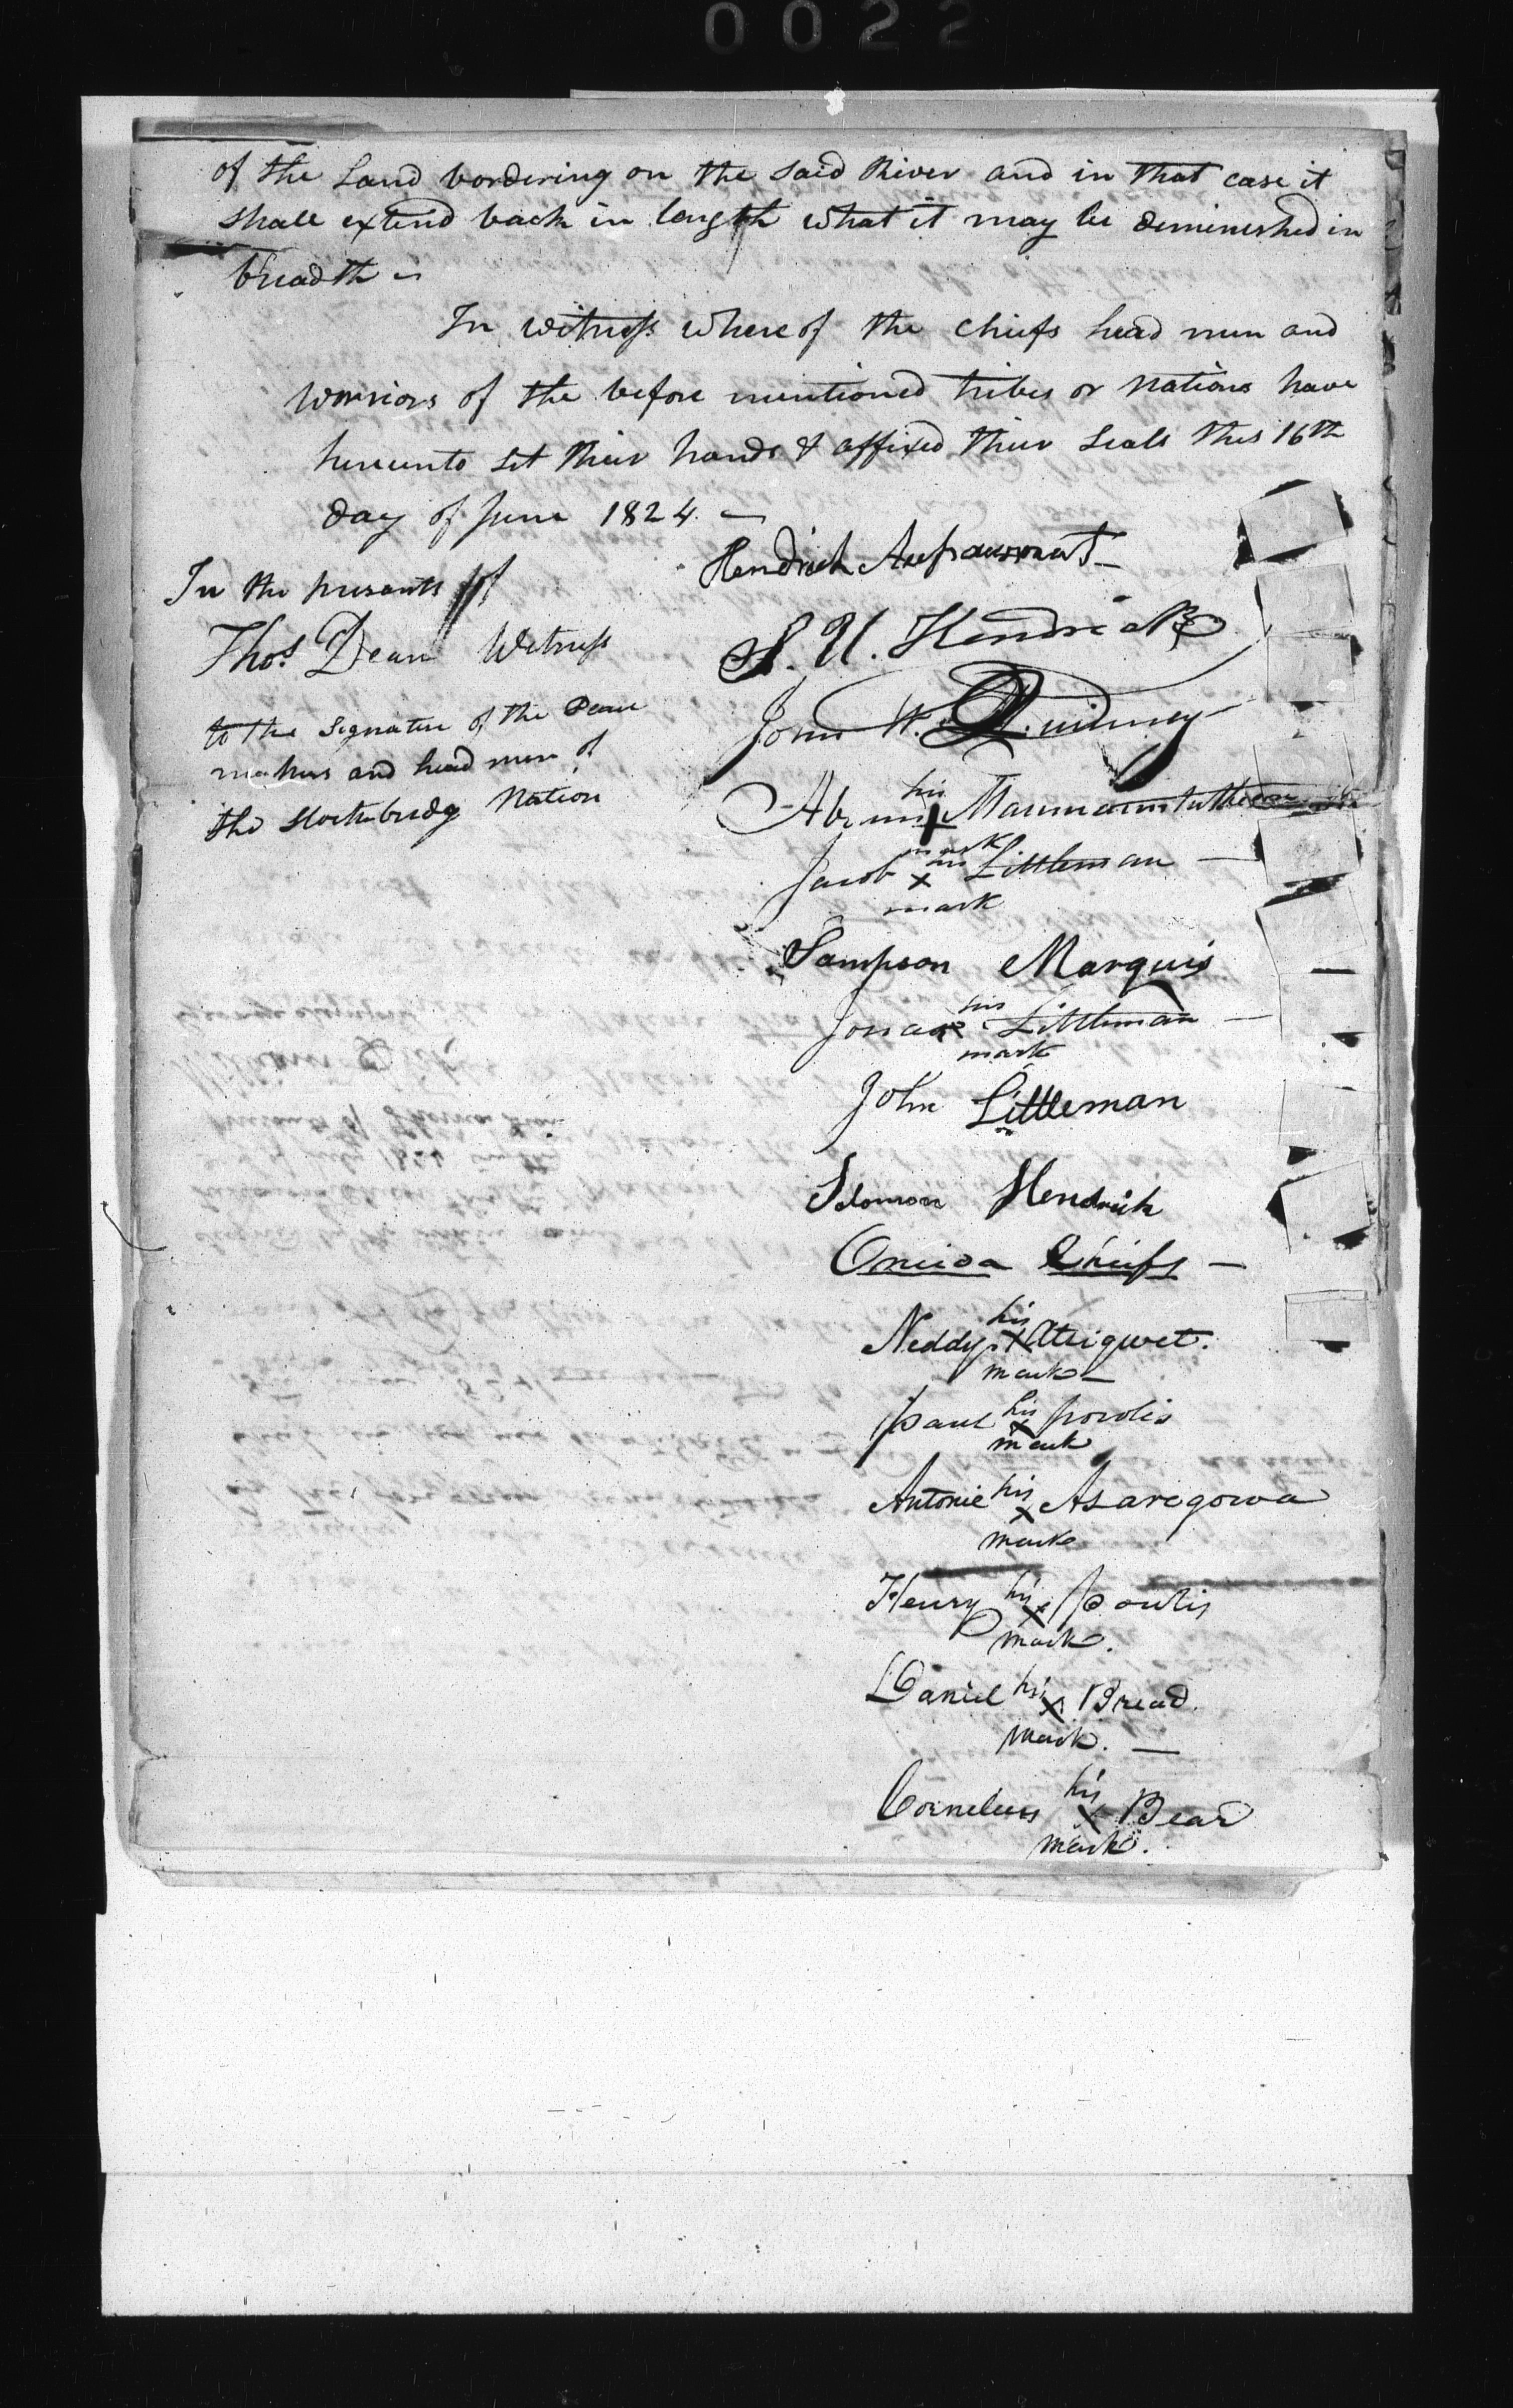 0022
of the Land bordering on the said River and in that case it
shall extend back in length what it may be diminished in
breadth —
In witness whereof the chiefs head men and
warriors of the before mentioned tribes or nations have
hereunto set their hands & affixed their seals this 16th
day of June 1824 —
In the presents of
Thos Dean Witness
to the signatur of the Peace
makers and head men of
the Stockbridg Nation
Hendrick Aupaumut —
S. U. Hendrick
John W. Quinney
his
Abram X
mark
his
Jacob X Littleman —
mark
Sampson Marquis
his
Jonas X Littleman —
mark
John Littleman
Solomon Hendrick
Oneida Chiefs —
his
Neddy X Atsiquet.
mark —
his
Paul X Powlis
mark
his
Antonie X Asaregowa
mark
his
Henry X Powlis
mark.
his
Daniel X Bread.
mark. —
his
Cornelius X Bear
mark.